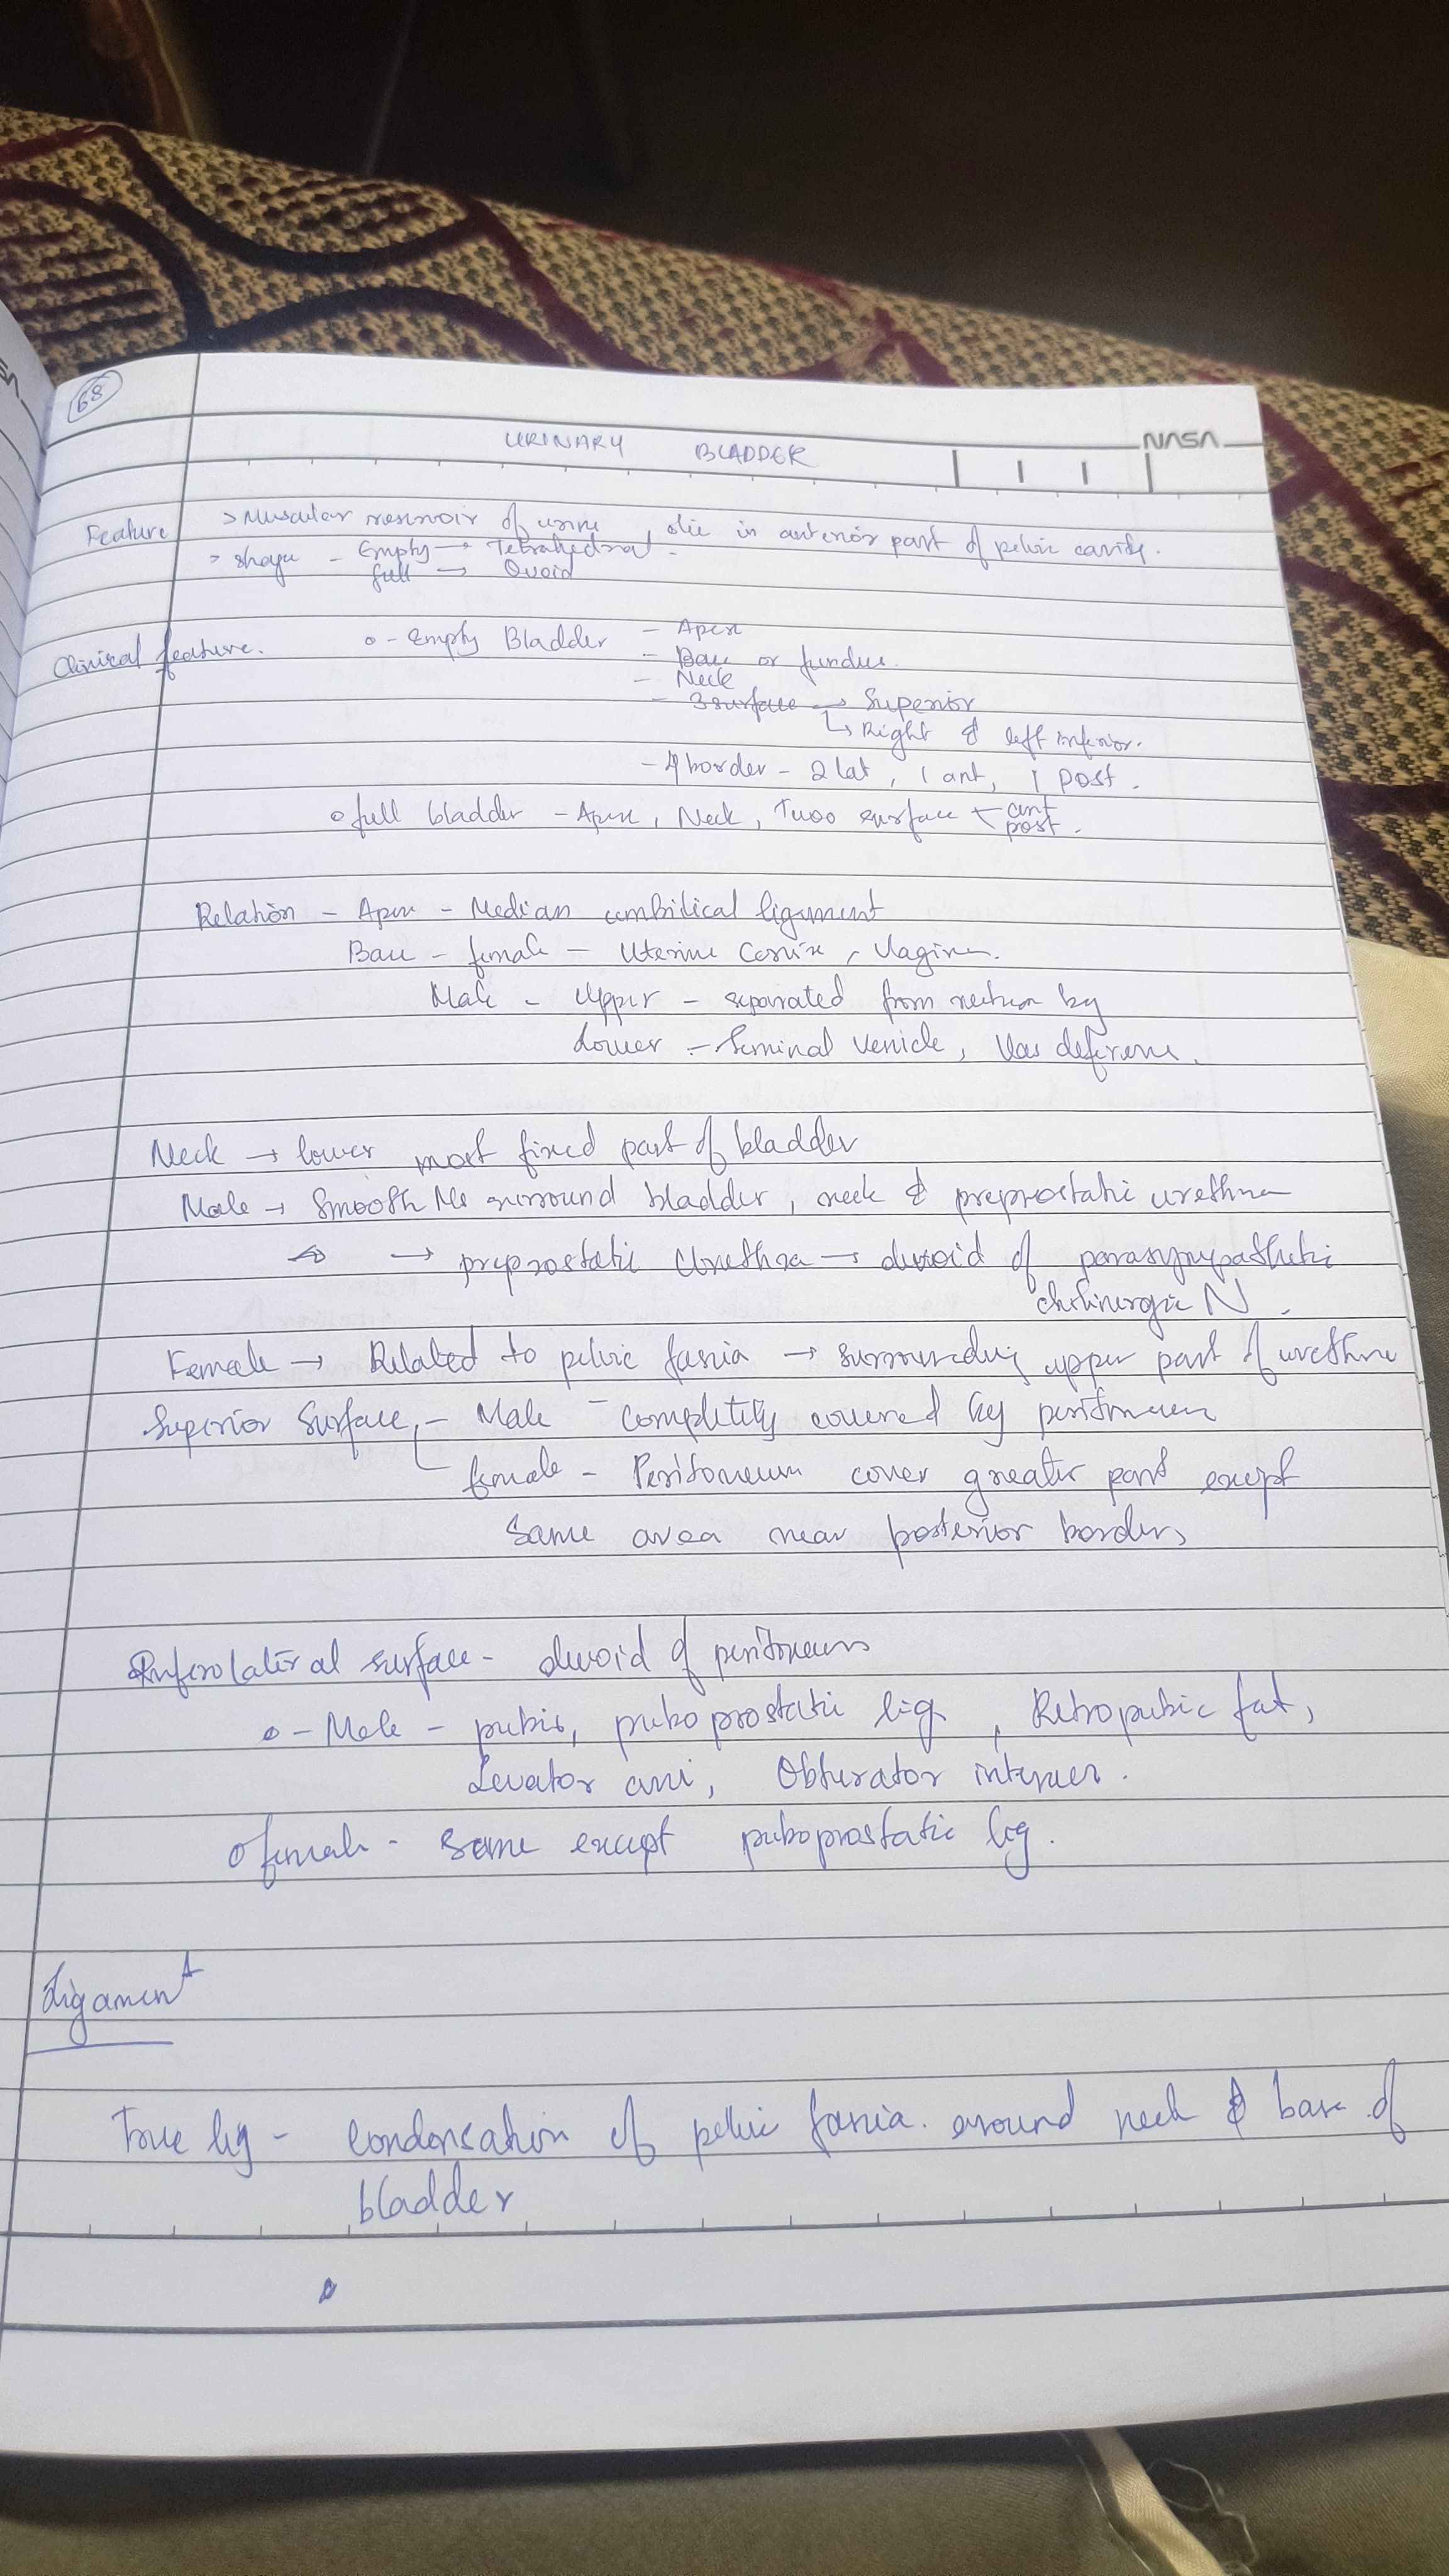 68
URINARY BLADDER
NASA
Feature > Muscular reservoir of urine, lie in anterior part of pelvic cavity.
> Shape - Empty → Tetrahedral.
full → Ovoid
Clinical feature. o - Empty Bladder - Apex
- Base or fundus.
- Neck
- 3 surface → Superior
↳ Right & left inferior.
- 4 border - 2 lat, 1 ant, 1 post.
o full bladder - Apex, Neck, Two surface - ant
post.
Relation - Apex - Median umbilical ligament
Base - female - Uterine cervix, Vagina.
Male - Upper - separated from rectum by
Lower - Seminal vesicle, Vas deferens.
Neck → lower most fixed part of bladder
Male → Smooth Ms surround bladder, neck & preprostatic urethra
→ preprostatic Urethra → devoid of parasympathetic
cholinergic N.
Female → Related to pelvic fascia → surrounding upper part of urethra
Superior Surface, - Male - completely covered by peritoneum
female - Peritoneum cover greater part except
same area near posterior border,
Inferolateral surface - devoid of peritoneum
o - Male - pubis, puboprostatic lig, Retropubic fat,
Levator ani, Obturator internus.
o female - same except puboprostatic lig.
Ligament
True lig - condensation of pelvic fascia. around neck & base of
bladder